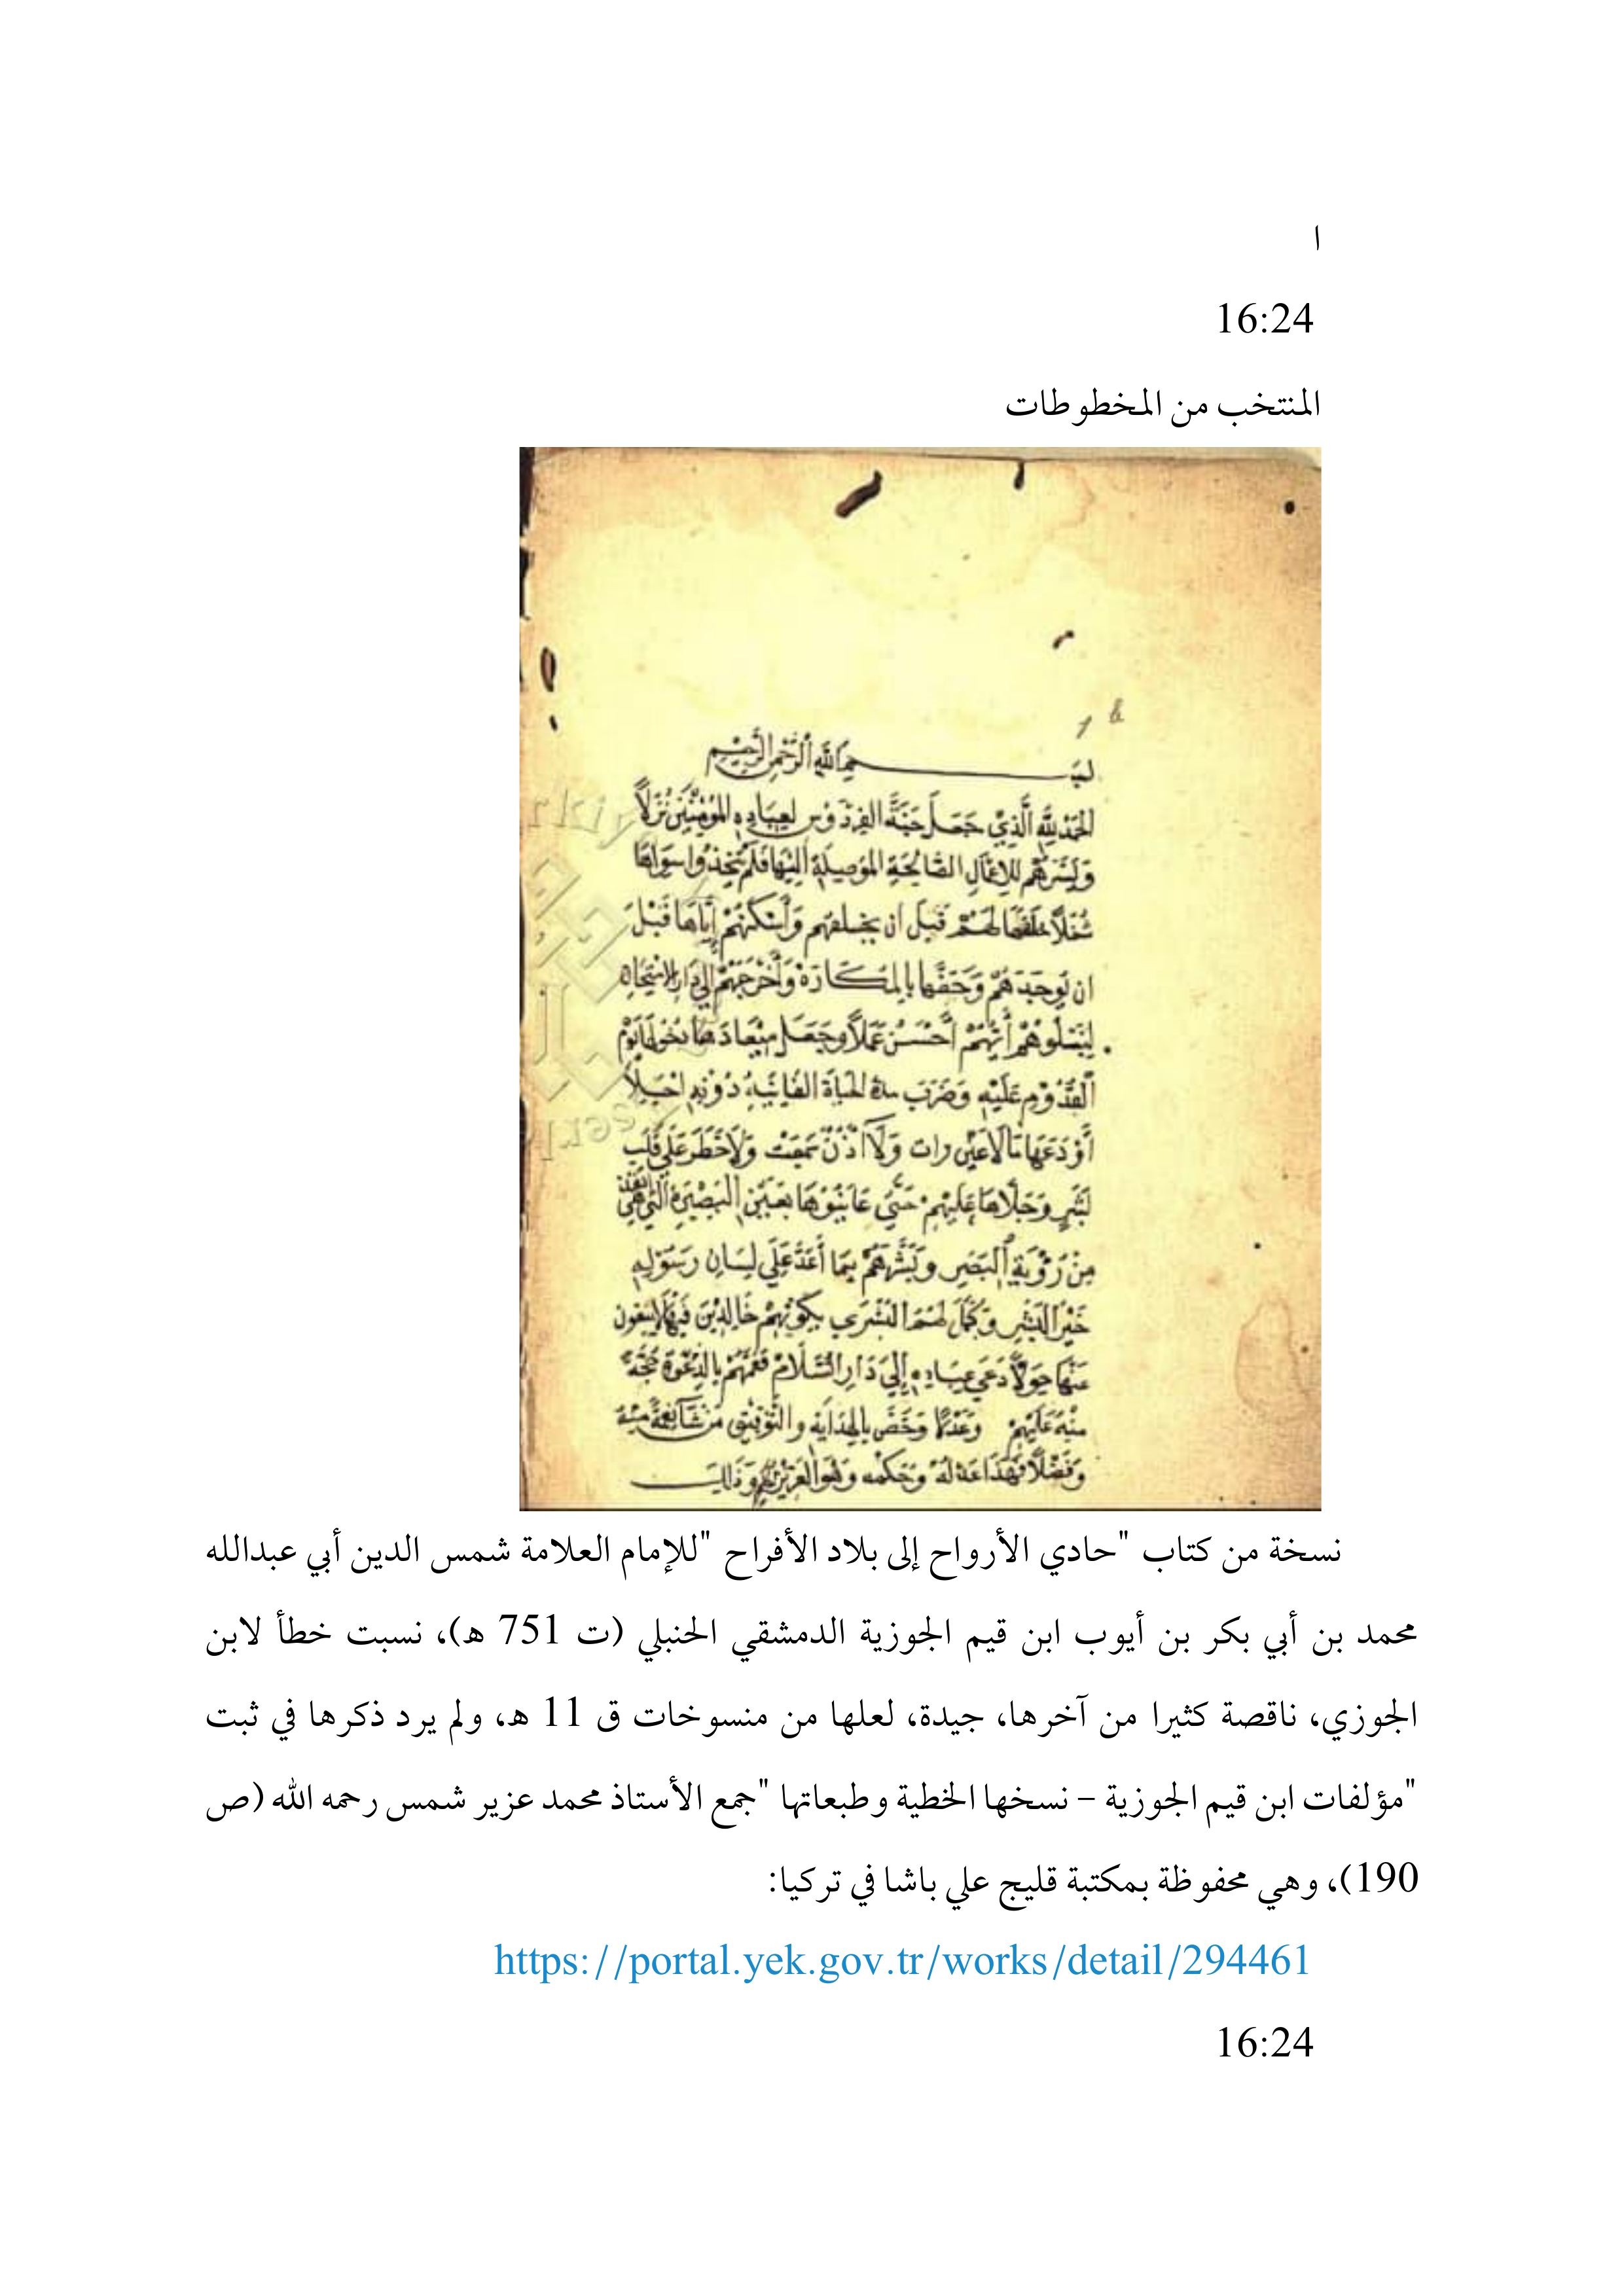 ا
16:24
المنتخب من المخطوطات
1 b
بسم الله الرحمن الرحيم
الحمد لله الذي جعل جنة الفردوس لعباده المؤمنين نزلا
ويسرهم للاعمال الصالحة الموصلة اليها فلم يتخذوا سواها
شغلا خلقها لهم قبل ان يخلقهم واسكنهم إياها قبل
ان يوجدهم وحفها بالمكاره وأخرجهم إلى دار الامتحان
ليبلوهم أيهم أحسن عملا وجعل ميعاد دخولها يوم
القدوم عليه وضرب مدة الحياة الفانية دونه اجلا
أودعها ما لا عين رات ولا أذن سمعت ولا خطر على قلب
بشر وجلاها عليهم حتى عاينوها بعين البصيرة التي هي انفذ
من رؤية البصر وبشرهم بما أعد على لسان رسوله
خير البشر وكمل لهم البشرى بكونهم خالدين فيها لا يبغون
عنها حولا دعى عباده إلى دار السلام فعمهم بالدعوة حجة
منه عليهم وعدلا وخص بالهداية والتوفيق من شا نعمة منه
وفضلا فهذا عدله وحكمه وهو العزيز الحكيم وذلك
نسخة من كتاب "حادي الأرواح إلى بلاد الأفراح "للإمام العلامة شمس الدين أبي عبدالله
محمد بن أبي بكر بن أيوب ابن قيم الجوزية الدمشقي الحنبلي (ت 751 هـ)، نسبت خطأ لابن
الجوزي، ناقصة كثيرا من آخرها، جيدة، لعلها من منسوخات ق 11 هـ، ولم يرد ذكرها في ثبت
"مؤلفات ابن قيم الجوزية – نسخها الخطية وطبعاتها "جمع الأستاذ محمد عزير شمس رحمه الله (ص
190)، وهي محفوظة بمكتبة قليج علي باشا في تركيا:
https://portal.yek.gov.tr/works/detail/294461
16:24